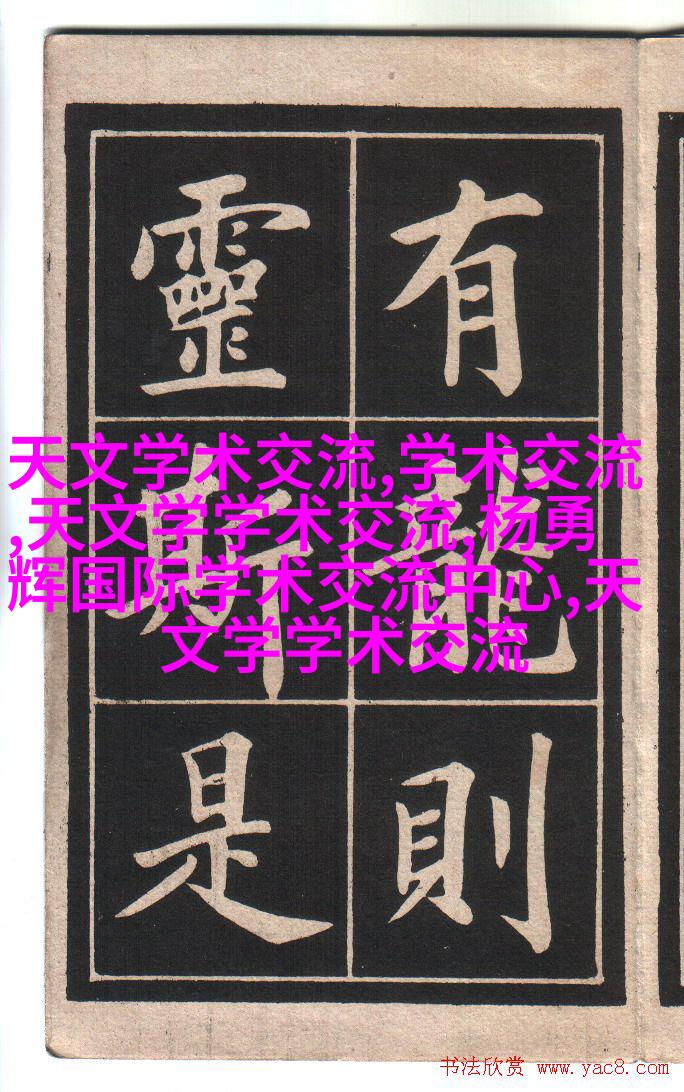 有龍則
靈斯是
天文学术交流,学术交流
,天文学学术交流,杨勇
辉国际学术交流中心,天
文学学术交流
书法欣赏 www.yac8.com